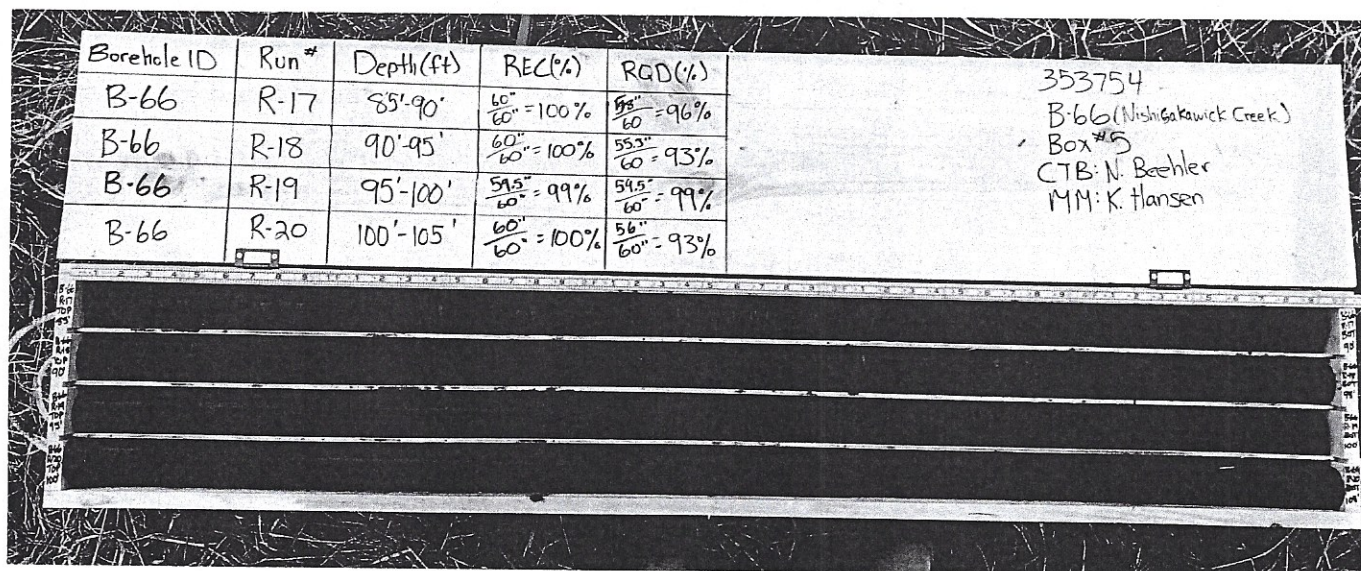 Borehole ID Run# Depth(ft) REC(%) RQD(%)
B-66 R-17 85'-90' 60"/60" = 100% /60 = 96%
B-66 R-18 90'-95' 60"/60" = 100% 55.3"/60 = 93%
B-66 R-19 95'-100' 59.5"/60" = 99% 59.5"/60" = 99%
B-66 R-20 100'-105' 60"/60" = 100% 56"/60" = 93%
353754
B-66 (Nishisakawick Creek)
Box #5
CTB: N. Beehler
MM: K. Hansen
B-66
R-17
TOP
85'
TOP
90'
95'
100'
90
100